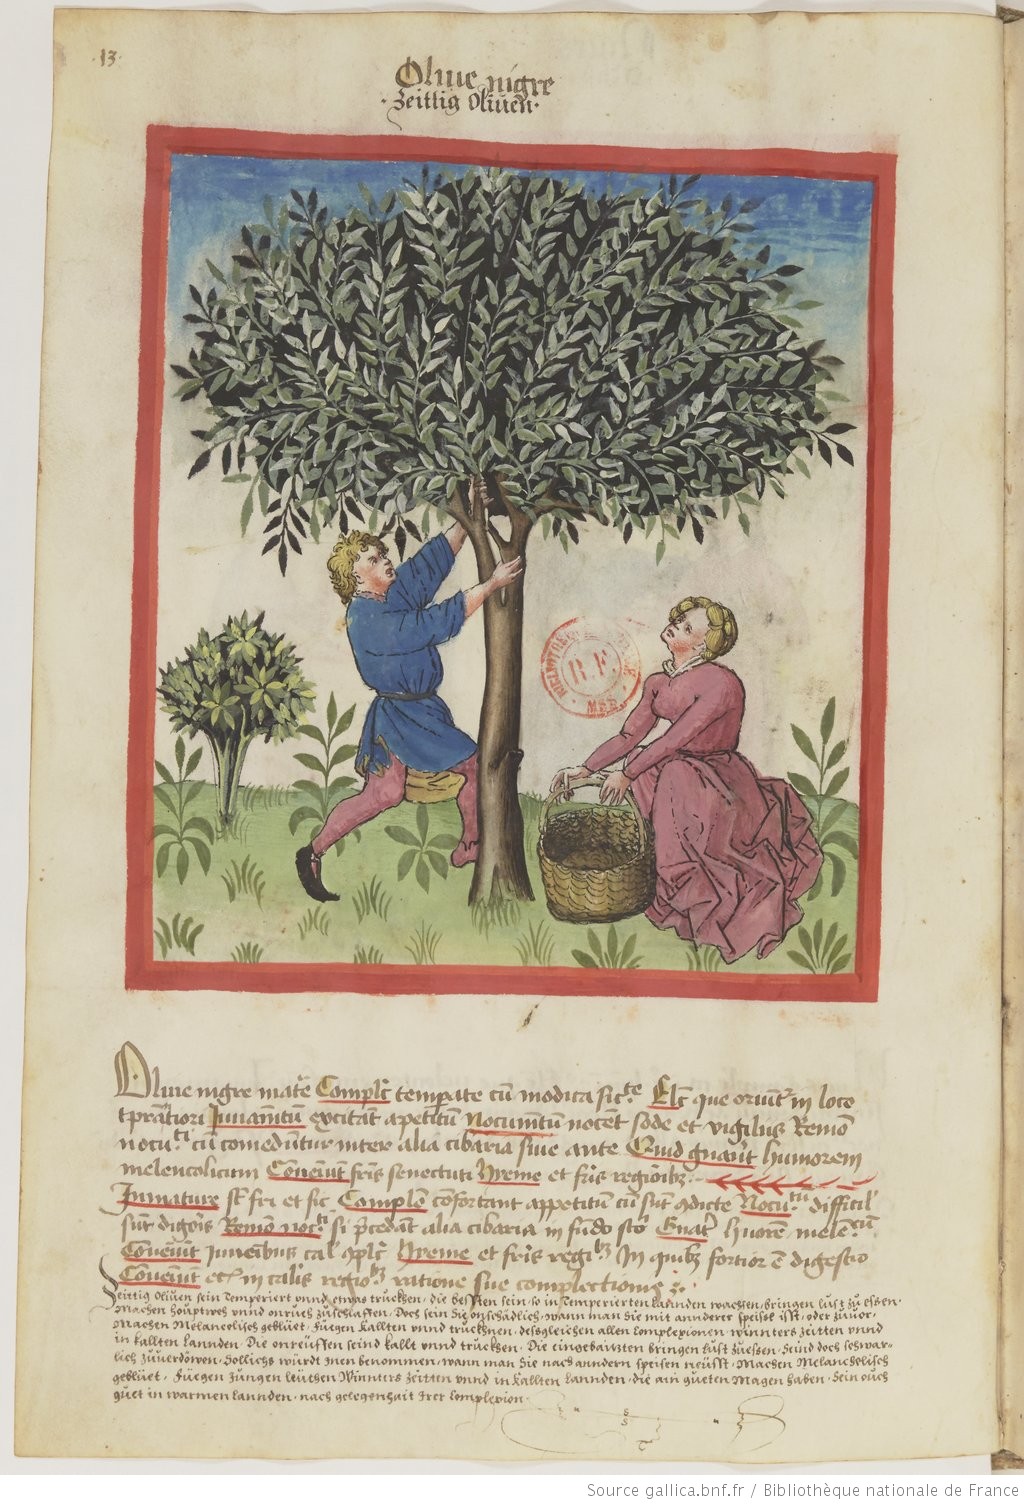 ·13·
Oliue nigre
·Zeittig Oliuen·
BIBLIOTHEQUE
R.F.
MSS
Oliue nigre mate Complo tempate cu modica sicte Elc que oriunt in loco
tpratiori Juuamtum excitat apetitum Nocumtum nocent sode et vigilijs Remo
nocuti cu comeduntur inter alia cibaria siue ante Quid gnant humorem
melencolicum Coueniut fris senectuti Yeme et fris regioibz
Immature st fri et sic Complem confortant appetitum cu sunt Nocu difficil
sunt digois Remo nocti si precedat alia cibaria in fundo sto Enat huore melecu
Coueniut Juuenibus cal 9plc Yeme et fris regibz In quibz fortior e digestio
Coueniut etc in calis regiobz ratione sue complectionis
Zeittig Oliuen sein Temperiert vnnd etwas trucken, die bessten sein, so in Temperierten Lannden wachsen, bringen lust zu essen,
Machen Houptweh vnnd onrueh zuschlaffen, Doch sein Sie onschädlich, wann man die mit annderer speiss isst, oder zuuor,
Machen Melancolisch geblüet, Fuegen Kallten vnnd trucknen, dessgleichen allen Complexionen, Winnters Zeitten vnnd
in kallten Lannden. Die onreiffen seind kallt vnnd trucken. Die eingebaitzten bringen lust zuessen, Seind doch schwar-
lich zuuerdöwen, Sollichs würdt Inen benommen, wann man die nach anndern speisen neüsst, Machen Melancholisch
geblüet, Fuegen Jungen leuthen Winnters Zeitten vnnd in kallten Lannden, die ain gueten Magen haben, Sein ouch
guet in warmen Lannden, nach gelegenhait Irer Complexion.
Source gallica.bnf.fr / Bibliothèque nationale de France